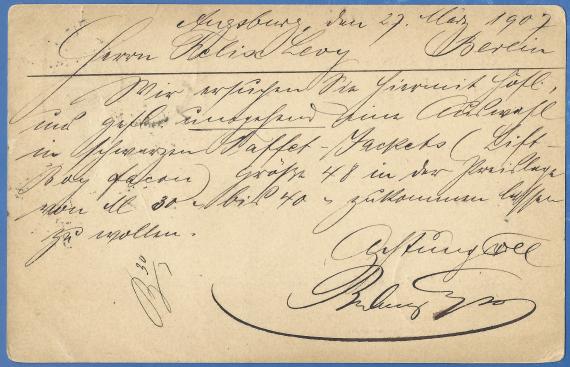 Augsburg, den 27. März 1907
Herrn Felix Levy Berlin
Wir ersuchen Sie hiermit höfl.
und gefl. umgehend eine Auswahl
in schwarzen Taffet-Jackets (Lift-
Boy façon) Größe 48 in der Preislage
von M 30 – bis 40 – zukommen lassen
zu wollen.
Achtungsvoll
30